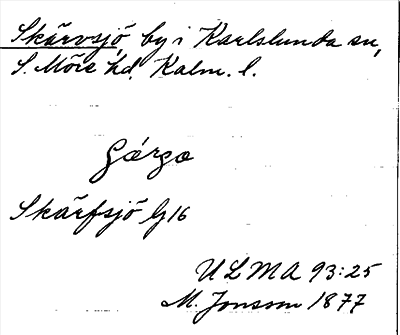 Skärvsjö, by i Karlslunda sn,
S. Möre hd, Kalm. l.
Skärfsjö G16
ULMA 93:25
M. Jonsson 1877